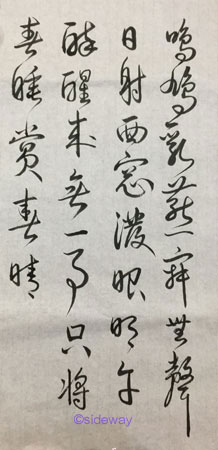 鳴鳩乳燕寂無聲
日射西窓潑眼明午
醉醒來無一事只將
春睡賞春晴
©sideway